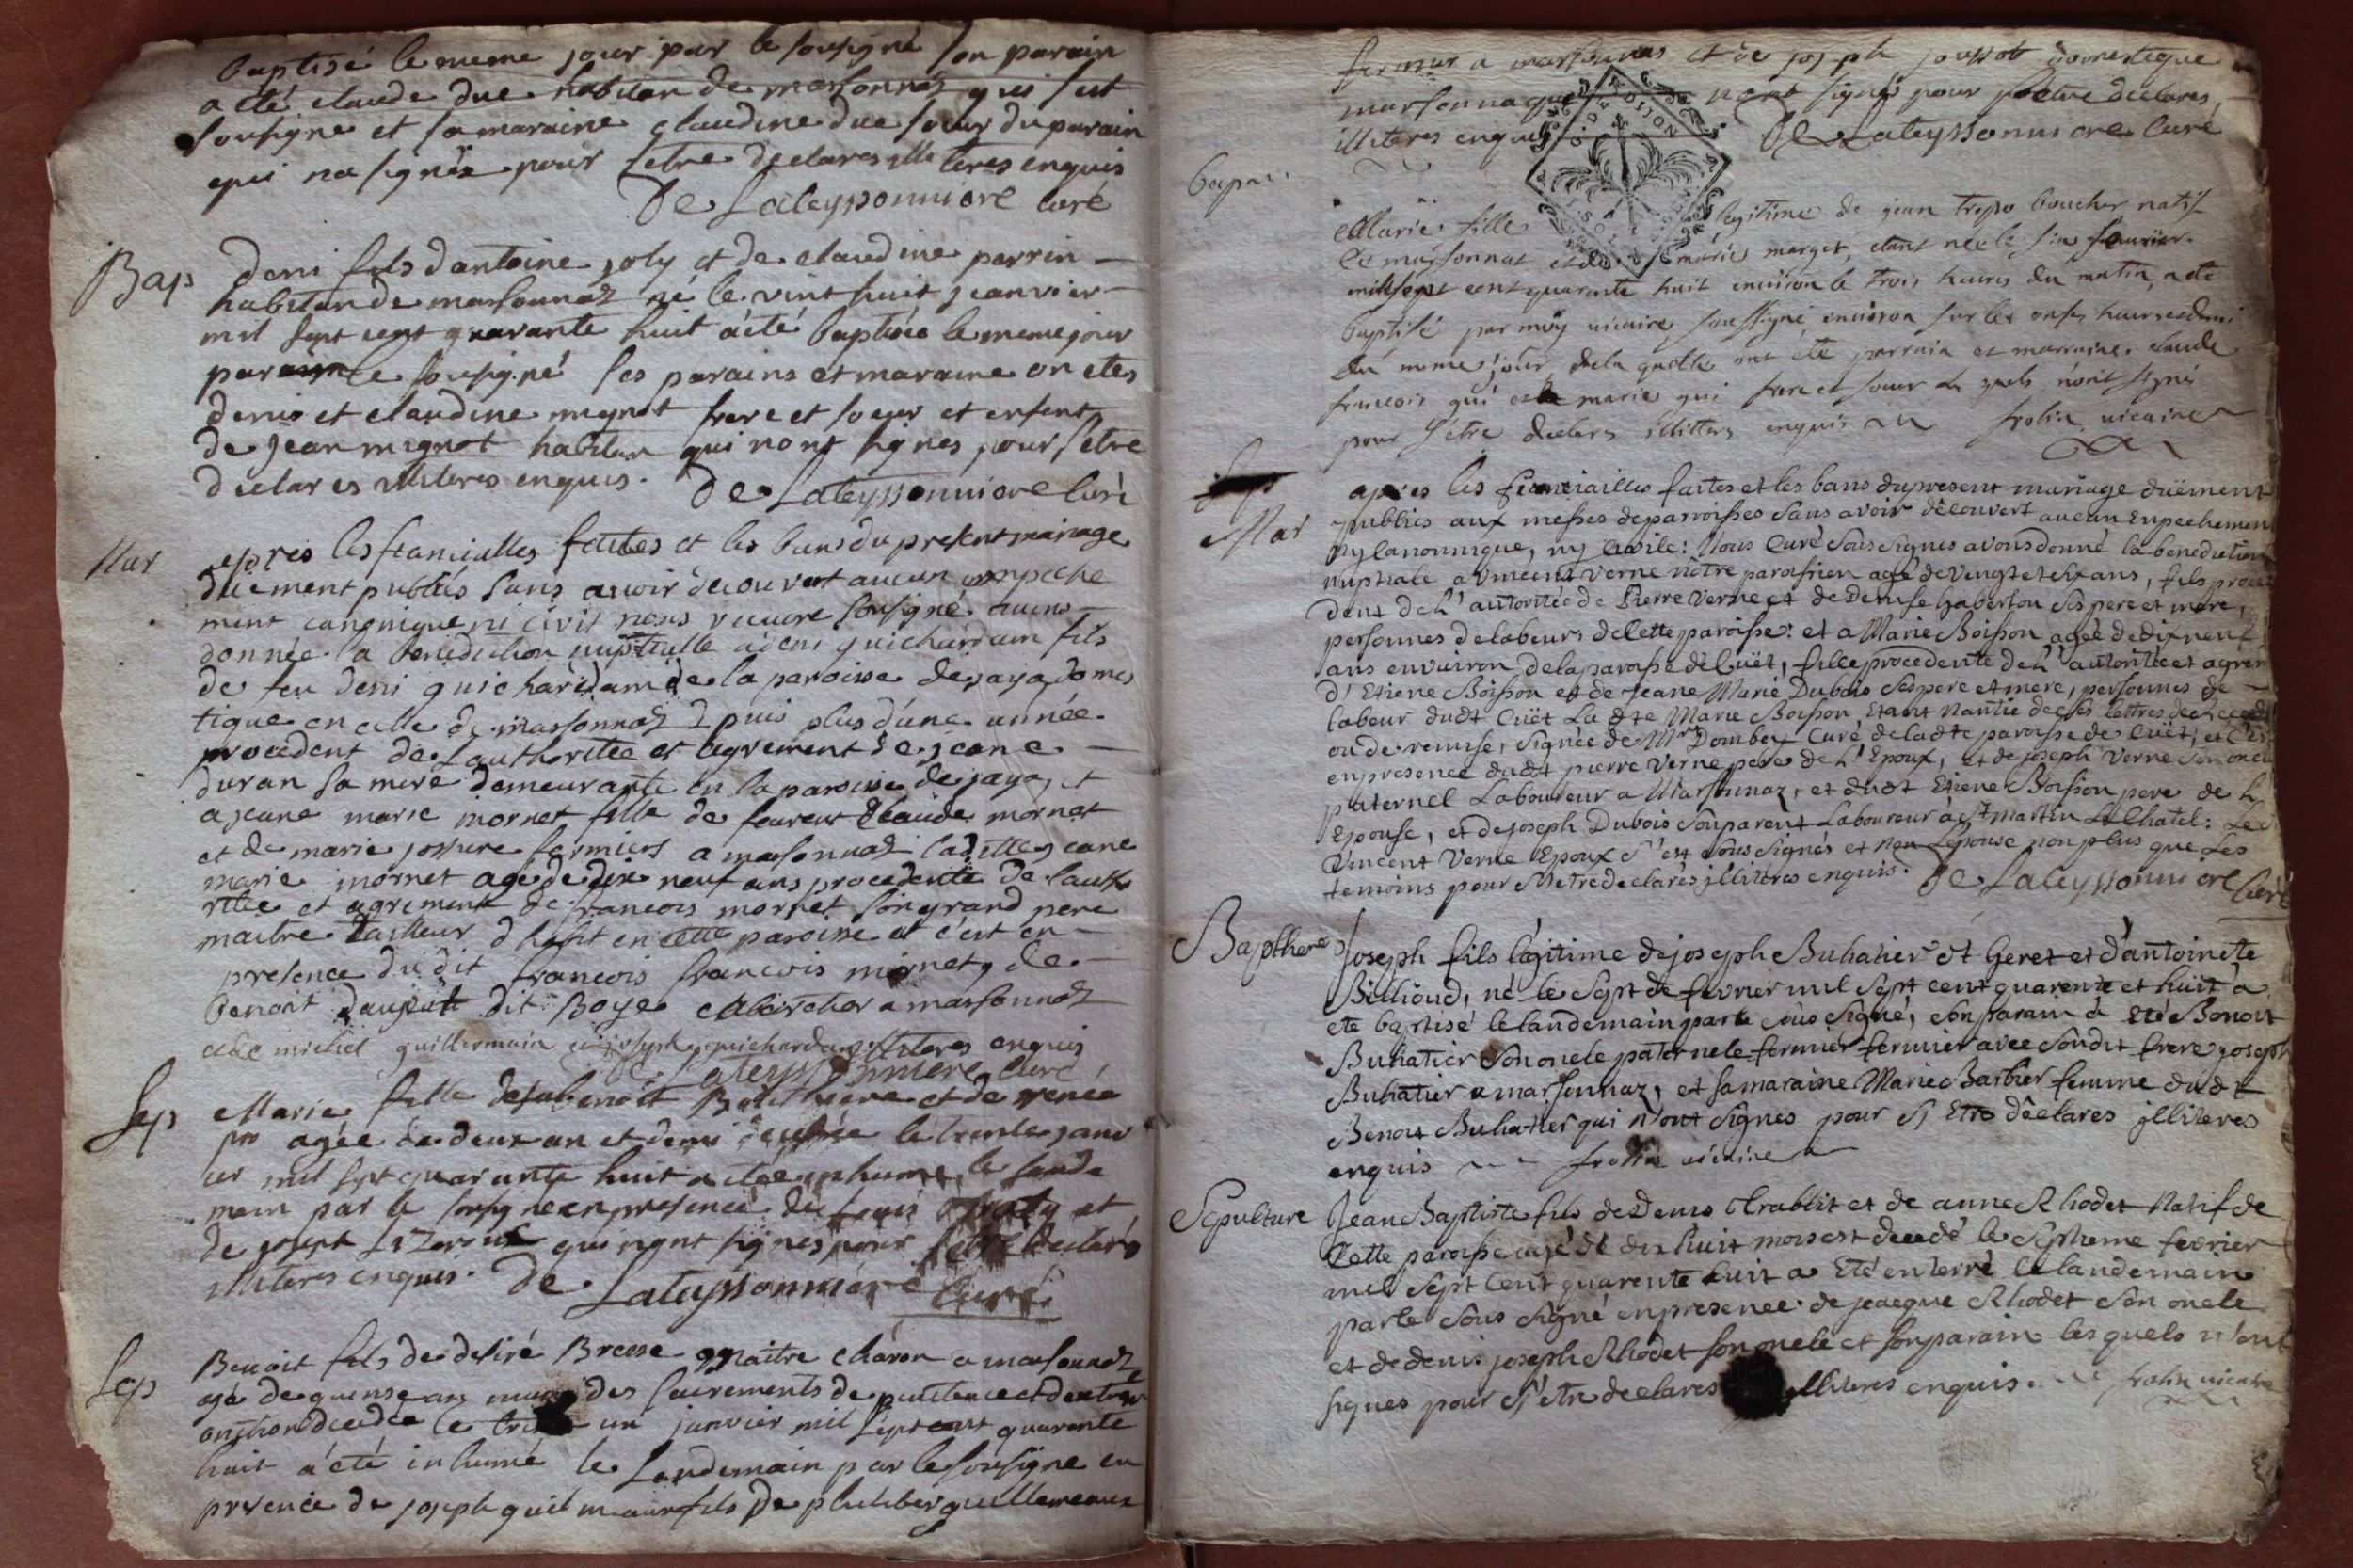 baptisé le meme jour par le sousigné son parain
a été claude due habitan de marsonnaz qui sest
sousigné et sa maraine claudine due soeur du parain
qui na signéz pour setre declares illiteres enquis
De Lateyssonniere curé
Bap
deni fils dantoine joly et de claudine perrin
habitan de marsonnaz né le vint huit jeanvier
mil sept cent quarante huit a été baptisée le meme jour
par le sousigné ses parains et maraine on etes
denis et claudine mignot frere et soeur et enfent
de jean mignot habitan qui nont signes pour setre
declares illiteres enquis. De Lateyssonniere Curé
Mar
apres les fiancialles faites et les bans du present mariage
duement publiés sans avoir decouvert aucun empeche
ment canonique ni civil nous vicaire sousigné avons
donnée la benediction nuptialle a deni guichardam fils
de feu deni guichardam de la paroisse de jaya domes
tique en celle de marsonnaz dpuis plus dune année
procedent de Lauthoritée et agrement de jeane
duran sa mere demeurante en la paroisse de jaya, et
a jeane marie mornet fille de Claude mornet
et de marie jossure fermiers a marsonnaz laditte jeane
marie mornet agé de dix neuf ans procedente de lautho
ritée et agrement de francois mornet son grand pere
maitre tailleur dhabit en cette paroisse et c'est en
presence du dit francois francois mornet, de
benoit dit Boye a marsonnaz
de michel guillermain joseph guichardam illiteres enquis
De Lateyssonniere Curé
Sep
Marie fille de benoit et de renée
agée de deux an et demi decedée le trente janv
ier mil sept quarante huit a étée inhumé le lande
main par le sousigné en presence de louis et
de josept qui nont signes pour setre declarés
illiteres enquis. De Lateyssonniere Curé
Sep
Benoit fils de desiré Bresse maitre charon a marsonnaz
agé de quinse ans muni des sacrements de penitence et dextreme
onction decedée le trente un janvier mil sept cent quarante
huit a été inhumé le Landemain par le sousigné en
presence de joseph guilmaure fils de philibert guillemeaux
fermier a marsonnas et de joseph joussot domestique
marsonna qui nont signés pour setre declares
illiteres enquis De Lateyssonniere Curé
bap
Marie fille legitime de jean trepo boucher natif
de marsonnat et de marie marget, etant née le six feuvrier
mil sept cent quarante huit environ le trois heures du matin, a été
baptisé par moy vicaire soussigné environ sur les onse heures et demi
du meme jour, de la quelle ont été parrain et marraine claude
francois gui et marie gui frere et soeur les quels n'ont signé
pour s'etre declares illitters enquis frolin vicaire
Mar
apres les fianciailles faites et les bans du present mariage düement
publiés aux messes de parroisses sans avoir découvert aucun Enpechement
ny canonnique, ny Civile: Nous Curé Sous Signés avons donné la benediction
nuptiale a Vincent Verne notre paroissien agé de Vingt et six ans, fils proce
dent de l'autoritée de Pierre Verne et de Denise haberlou Ses pere et mere,
personnes de labeurs de Cette paroisse: et a Marie Boisson agée de dixneuf
ans environ de la paroisse de Cüet, fille procedente de l'autoritée et agrem
d'Etiene Boisson et de Jeane Marie Dubois Ses pere et mere, personnes de
labeur dudt Cüet La dte Marie Boisson Etant Nantie de Ses lettres de recede
ou de remise, Signée de Mr Dombey Curé de ladte paroisse de Cuët; et C'est
en presence dudt pierre Verne pere de l'Epoux, et de joseph Verne Son oncle
paternel Laboureur a Marsonnaz, et dudt Etiene Boisson pere de L
Epouse, et de joseph Dubois Son parent Laboureur à St martin Le Chatel: Le
Vincent Verne Epoux S'est Sous Signés et Non Lepouse non plus que Les
temoins pour S'etre declarés jlliteres enquis. De Lateyssonniere Curé
Bapthere
Joseph fils légitime de joseph Buhatier et Geret et d'antoinete
Billioud, né le Sept de fevrier mil Sept cent quarente et huit à
ete baptisé le landemain par le Sous Signé, Son parain à Eté Benoit
Buhatier Son oncle paternele fermier fermier avec Sondit frere joseph
Buhatier a marsonnaz, et sa maraine Marie Barbier femme dudt
Benoit Buhatier qui n'ont Signes pour S'Etre déclares jlliteres
enquis frolin vicaire
Sepulture
Jean Baptiste fils de Denis Trablit et de anne Rhodet Natif de
Cette paroisse agé de dix huit mois est decedé le Septieme fevrier
mil Sept Cent quarente huit a Eté enterré le landemain
par le Sous Signé en presence de jeacque Rhodet Son oncle
et de denis joseph Rhodet son oncle et son parain les quels n'ont
signes pour S'etre declares jlliteres enquis. frolin vicaire